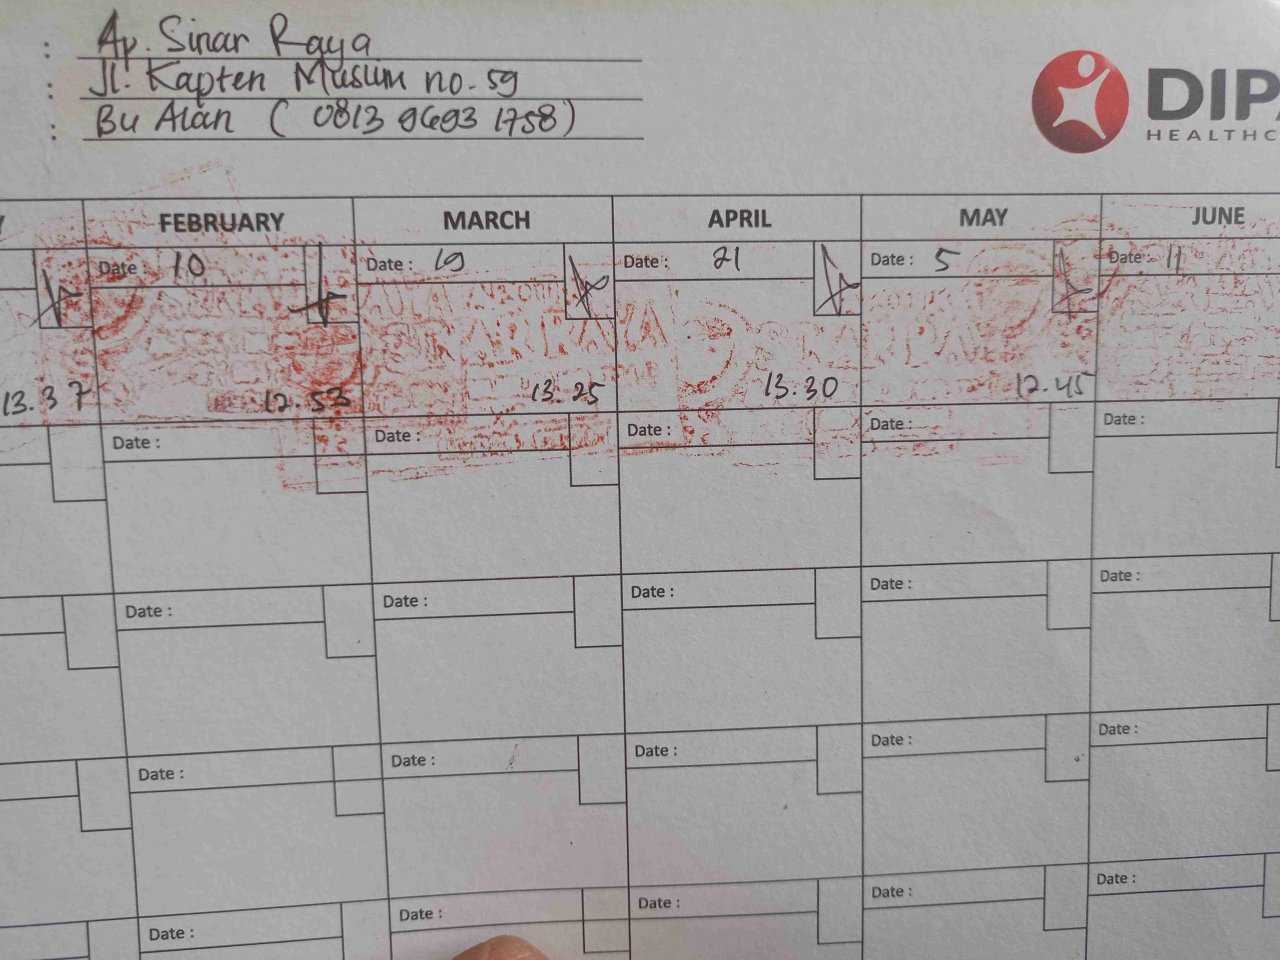 : Ap. Sinar Raya
: Jl. Kapten Muslim no. 59
: Bu Alan ( 0813 9693 1758 )
DIPA
HEALTHC
Y FEBRUARY MARCH APRIL MAY JUNE
Date : 10 Date : 19 Date : 21 Date : 5 Date : 11
13.37 12.53 13.25 13.30 12.45
Date : Date : Date : Date : Date :
Date : Date : Date : Date : Date :
Date : Date : Date : Date : Date :
Date : Date : Date : Date : Date :